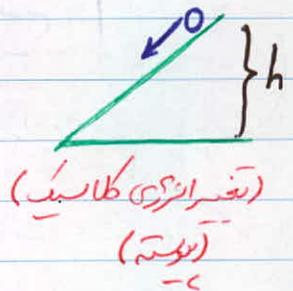 h
(تغییر انرژی کلاسیک)
(پیوسته)